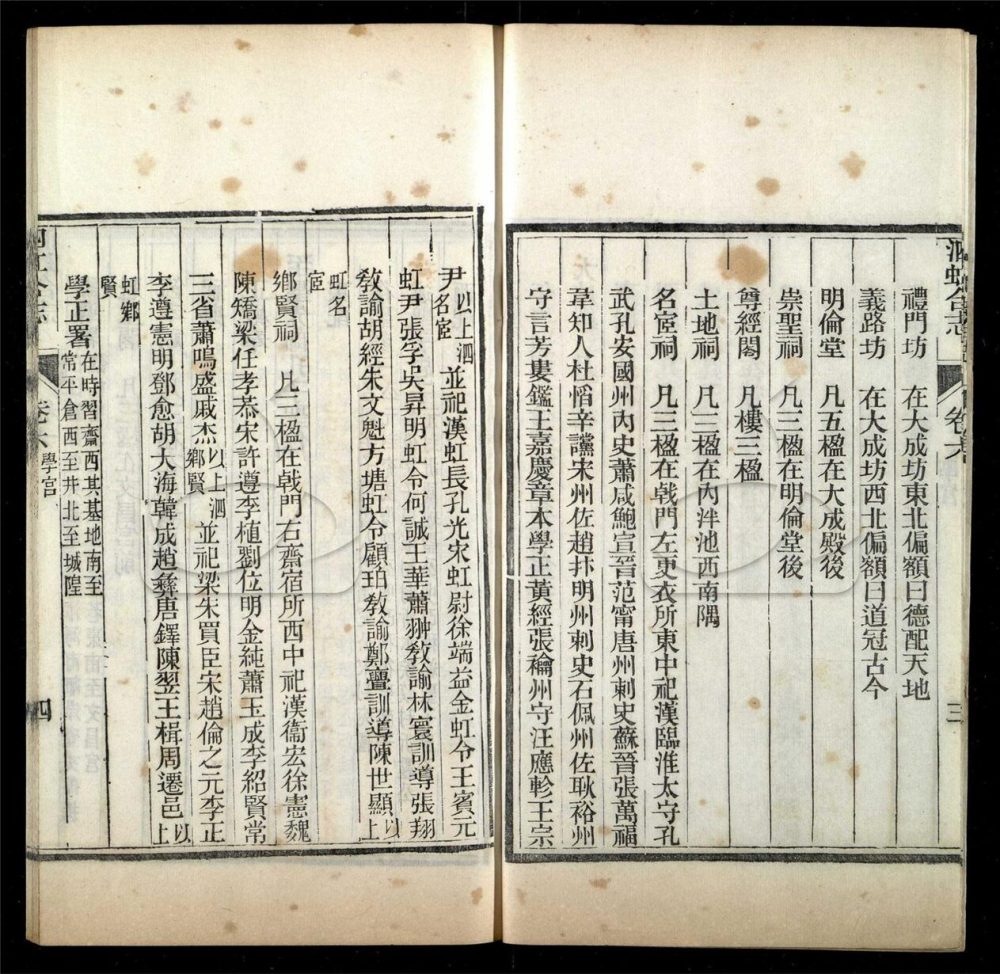 泗虹合志
卷六
三
禮門坊 在大成坊東北偏額曰德配天地
義路坊 在大成坊西北偏額曰道冠古今
明倫堂 凡五楹在大成殿後
崇聖祠 凡三楹在明倫堂後
尊經閣 凡樓三楹
土地祠 凡三楹在內泮池西南隅
名宦祠 凡三楹在戟門左更衣所東中祀漢臨淮太守孔
武孔安國州內史蕭咸鮑宣晉范甯唐州刺史蘇晉張萬福
韋知人杜慆辛讜宋州佐趙抃明州刺史石佩州佐耿裕州
守言芳婁鑑王嘉慶章本學正黃經張褕州守汪應軫王宗
尹以上泗名宦並祀漢虹長孔光宋虹尉徐端益金虹令王賓元
虹尹張孚吳昇明虹令何誠王華蕭翀敎諭林寰訓導張翔
敎諭胡經朱文魁方塘虹令顧珀敎諭鄭舋訓導陳世顯以上
虹名宦
鄉賢祠 凡三楹在戟門右齋宿所西中祀漢衞宏徐憲魏
陳矯梁任孝恭宋許遵李植劉位明金純蕭玉成李紹賢常
三省蕭鳴盛戚杰以上泗鄉賢並祀梁朱買臣宋趙倫之元李正
李遵憲明鄧愈胡大海韓成趙彝唐鐸陳翌王楫周遷邑以上
虹鄉賢
學正署在時習齋西其基地南至常平倉西至井北至城隍
卷六 學宮
四